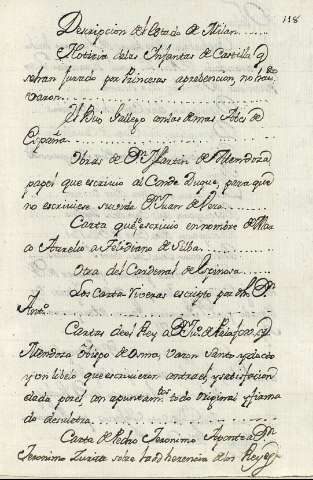 118
Descripcion del Estado de Milan
Noticia de las Infantas de Castilla q
se han jurado por Princesas a prebencion, no
varon
El Buo Gallego con las demas Abes de
España
Obras de Dn Martin de Mendoza
papel que escrivio al Conde Duque, para que
no escriviese su vida Dn Juan de Vera
Carta que se escrivio en nombre de Mar
co Aurelio a Feliciano de Silba
Otra del Cardenal de Espinosa
Dos Carta escripto por el Dr
Anto
Cartas del Rey a Dn Jun de Palafox y
Mendoza Obispo de Osma, varon Santo y docto
y un libelo que escrivieron contra el, y satisfacion
dada por el con apuntamtos todo original y firma
do de su letra
Carta de Pedro Jeronimo Aponte a Dn
Jeronimo Zurita sobre la herencia de los Reyes